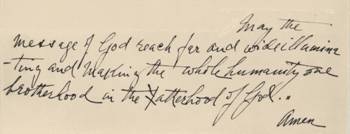 May the
message of God reach far and wide illumina
ting and making the whole humanity one
brotherhood in the Fatherhood of God..
Amen